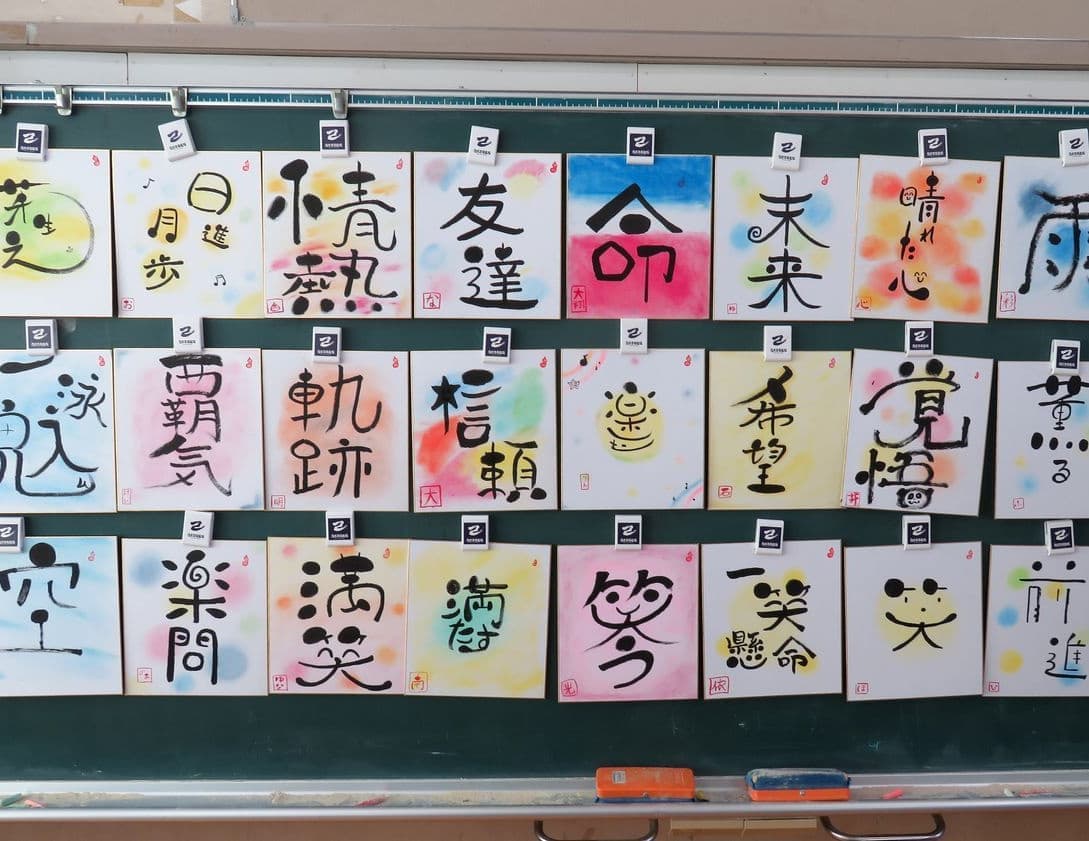 芽生え
日進
月歩
情熱
友達
命
未来
晴れた心
雨
一泳入魂
覇気
軌跡
信頼
楽しむ
希望
覚悟
薫る
空
楽問
満笑
満たす
笑う
一笑懸命
笑
前進